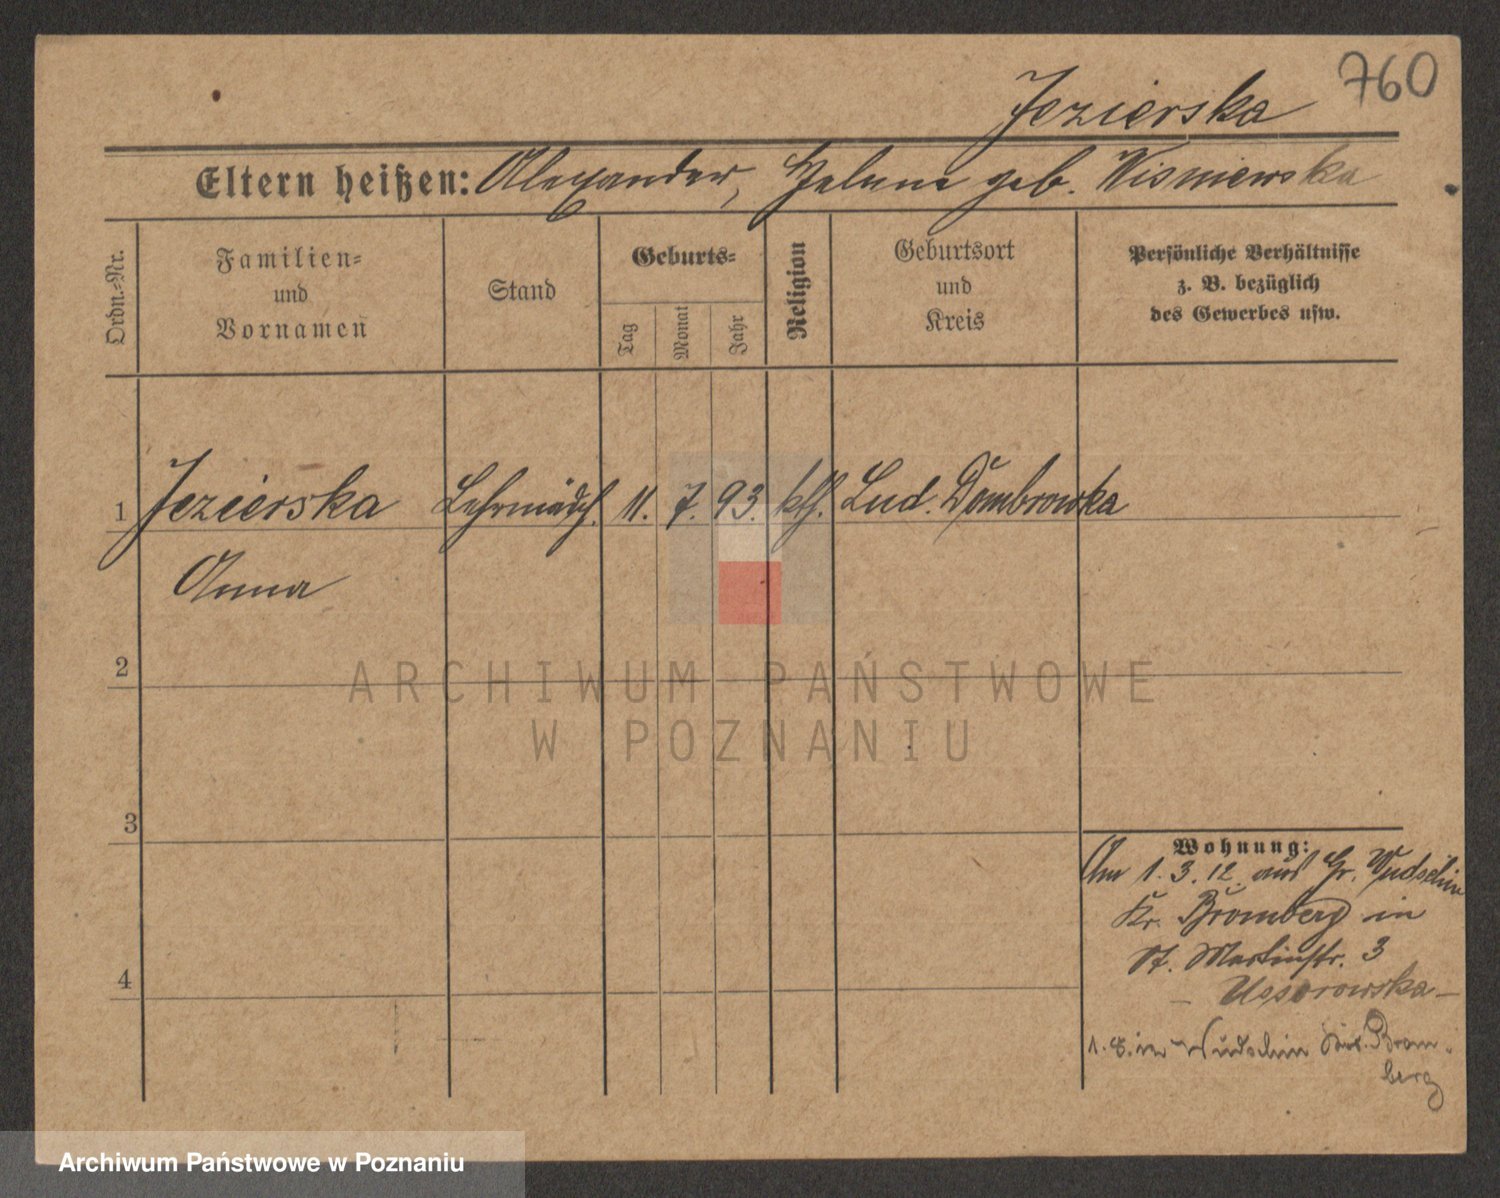 760
Jezierska
Eltern heißen: Alexander, Helene geb. Wisniewska
Ordn.-Nr.
Familien-
und
Vornamen
Stand
Geburts-
Tag
Monat
Jahr
Religion
Geburtsort
und
Kreis
Persönliche Verhältnisse
z. B. bezüglich
des Gewerbes usw.
1 Jezierska Lehrmädch. 11. 7. 93. kth. Lud. Dombrowka
Anna
2
ARCHIWUM PAŃSTWOWE
W POZNANIU
3
Wohnung:
Am 1.3.12. aus Gr. Wudschin
Kr. Bromberg in
St. Martinstr. 3
4
1.8. in Wudschin Krs. Brom-
berg
Archiwum Państwowe w Poznaniu